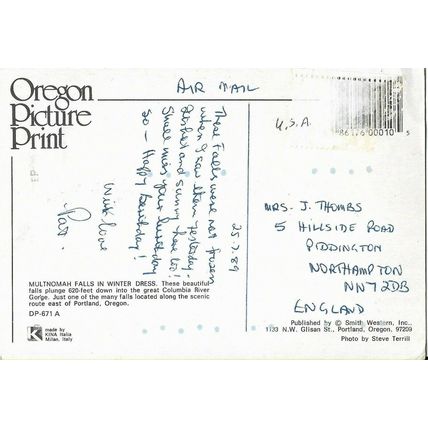 AIR MAIL
Oregon
Picture
Print
U.S.A.
86176 00010 5
25.7.89
These Falls were not frozen
when I saw them yesterday -
and sunny here too!
Shall miss your birthday
so - Happy Birthday!
With love
Pat.
MRS. J. THOMBS
5 HILLSIDE ROAD
PIDDINGTON
NORTHAMPTON
NN7 2DB
ENGLAND
MULTNOMAH FALLS IN WINTER DRESS. These beautiful
falls plunge 620-feet down into the great Columbia River
Gorge. Just one of the many falls located along the scenic
route east of Portland, Oregon.
DP-671 A
K
made by
KINA Italia
Milan, Italy
Published by © Smith Western, Inc.,
1133 N.W. Glisan St., Portland, Oregon, 97209
Photo by Steve Terrill